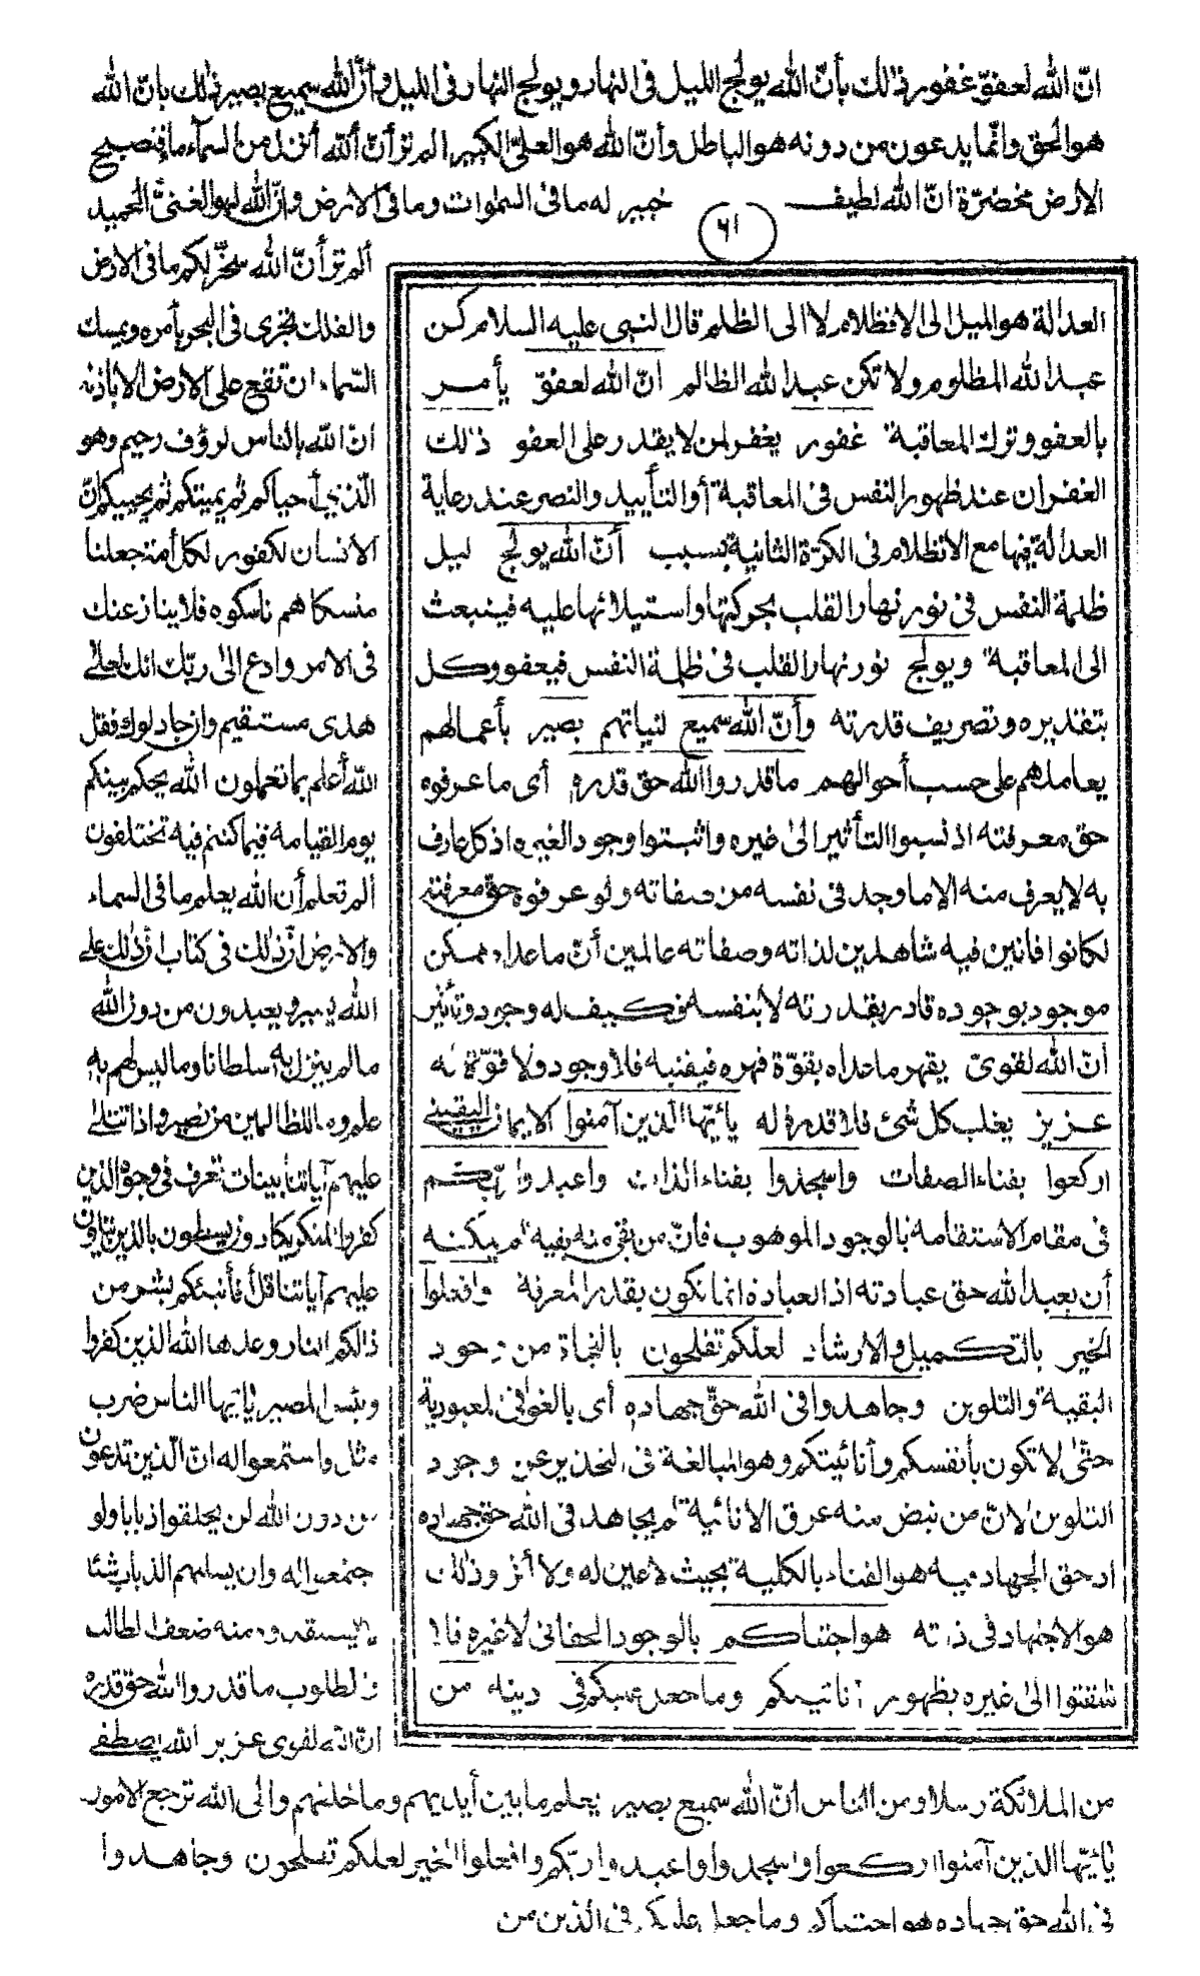 انّ الله لعفوّ غفور ذٰلك بأنّ الله يولج الليل فى النهار ويولج النهار فى الليل وأنّ الله سميع بصير ذٰلك بانّ الله
هو الحق وانّما يدعون من دونه هو الباطل وأنّ الله هو العلىّ الكبير الم تر أنّ ألله أنزل من السمآء ماء فتصبح
الارض مخضرّة انّ الله لطيف خبير له ما فى السمٰوات وما فى الارض وانّ الله لهو الغنىّ الحميد
٦١
ألم تر أنّ الله سخّر لكم ما فى الارض
والفلك تجرى فى البحر بأمره ويمسك
السّماء ان تقع على الارض الا باذنه
انّ اللّه بالناس لرؤف رحيم وهو
الّذي أحياكم ثم يميتكم ثم يحييكم انّ
الانسان لكفور لكل أمة جعلنا
منسكا هم ناسكوه فلا ينازعنك
فى الامر وادع الىٰ ربّك انك لعلىٰ
هدى مستقيم وان جادلوك فقل
اللّه أعلم بما تعملون الله يحكم بينكم
يوم القيامه فيما كنتم فيه تختلفون
ألم تعلم أن الله يعلم ما فى السماء
والارض انّ ذٰلك فى كتاب انّ ذٰلك على
الله يسير ويعبدون من دون الله
ما لم ينزل به سلطانا وما ليس لهم به
علم وما للظالمين من نصير واذا تتلىٰ
عليهم آياتنا بينات تعرف فى وجوه الذين
كفروا المنكر يكادون يسطون بالذين يتلون
عليهم آياتنا قل أفأنبئكم بشر من
ذالكم النار وعدها الله الذين كفروا
وبئس المصير يٰايّها الناس ضرب
مثل واستمعوا له انّ الّذين تدعون
من دون الله لن يخلقوا ذبابا ولو
جتمعوا له وان يسلبهم الذباب شيئا
لا يستنقذوه منه ضعف الطالب
والمطلوب ما قدروا الله حق قدره
انّ الله لقوى عزيز الله يصطفى
العدالة هو الميل الى الانظلام لا الى الظلم قال النبى عليه السلام كن
عبد الله المظلوم ولا تكن عبد الله الظالم انّ الله لعفوّ يأمر
بالعفو وترك المعاقبة غفور يغفر لمن لا يقدر على العفو ذٰلك
الغفران عند ظهور النفس فى المعاقبة أو التأييد والنصر عند رعاية
العدالة فيها مع الانظلام فى الكرّة الثانية بسبب أنّ الله يولج ليل
ظلمة النفس فى نور نهار القلب بحركتها واستيلائها عليه فينبعث
الى المعاقبة ويولج نور نهار القلب فى ظلمة النفس فيعفو وكل
بتقديره وتصريف قدرته وأنّ الله سميع لنياتهم بصير بأعمالهم
يعاملهم على حسب أحوالهم ما قدروا الله حق قدره أى ما عرفوه
حق معرفته اذ نسبوا التأثير الىٰ غيره واثبتوا وجودا لغيره اذ كل عارف
به لا يعرف منه الا ما وجد فى نفسه من صفاته ولو عرفوه حق معرفته
لكانوا فانين فيه شاهدين لذاته وصفاته عالمين أنّ ما عداه ممكن
موجود بوجوده قادر بقدرته لا بنفسه فكيف له وجود وتأثير
انّ الله لقوىّ يقهر ما عداه بقوّة قهره فيفنيه فلا وجود ولا قوّة له
عزيز يغلب كل شئ فلا قدرة له يٰأيّها الّذين آمنوا الايمان اليقينى
اركعوا بفناء الصفات واسجدوا بفناء الذات واعبدوا ربّكم
فى مقام الاستقامه بالوجود الموهوب فانّ من بقى منه بقية لم يمكنه
أن يعبد الله حق عبادته اذ العبادة انما تكون بقدر المعرفة وافعلوا
الخير بالتكميل والارشاد لعلكم تفلحون بالنجاة من وجود
البقية والتلوين وجاهدوا فى الله حقّ جهاده أى بالغوا فى العبودية
حتّىٰ لا تكون بأنفسكم وأنائيتكم وهو المبالغة فى التحذير عن وجود
التلوين لانّ من نبض منه عرق الانائية لم يجاهد فى الله حق جهاده
اذ حق الجهاد فيه هو الفناء بالكلية بحيث لا عين له ولا أثر وذٰلك
هو الاجتهاد فى ذاته هو اجتباكم بالوجود الحقانى لا غيره فلا
تلتفتوا الىٰ غيره بظهور أنائيتكم وما جعل عليكم فى دينه من
من الملائكة رسلا ومن الناس انّ الله سميع بصير يعلم ما بين أيديهم وما خلفهم والى الله ترجع الامور
يٰايّها الّذين آمنوا اركعوا واسجدوا واعبدوا ربّكم وافعلوا الخير لعلكم تفلحون وجاهدوا
فى الله حق جهاده هو اجتباكم وما جعل عليكم فى الدين من